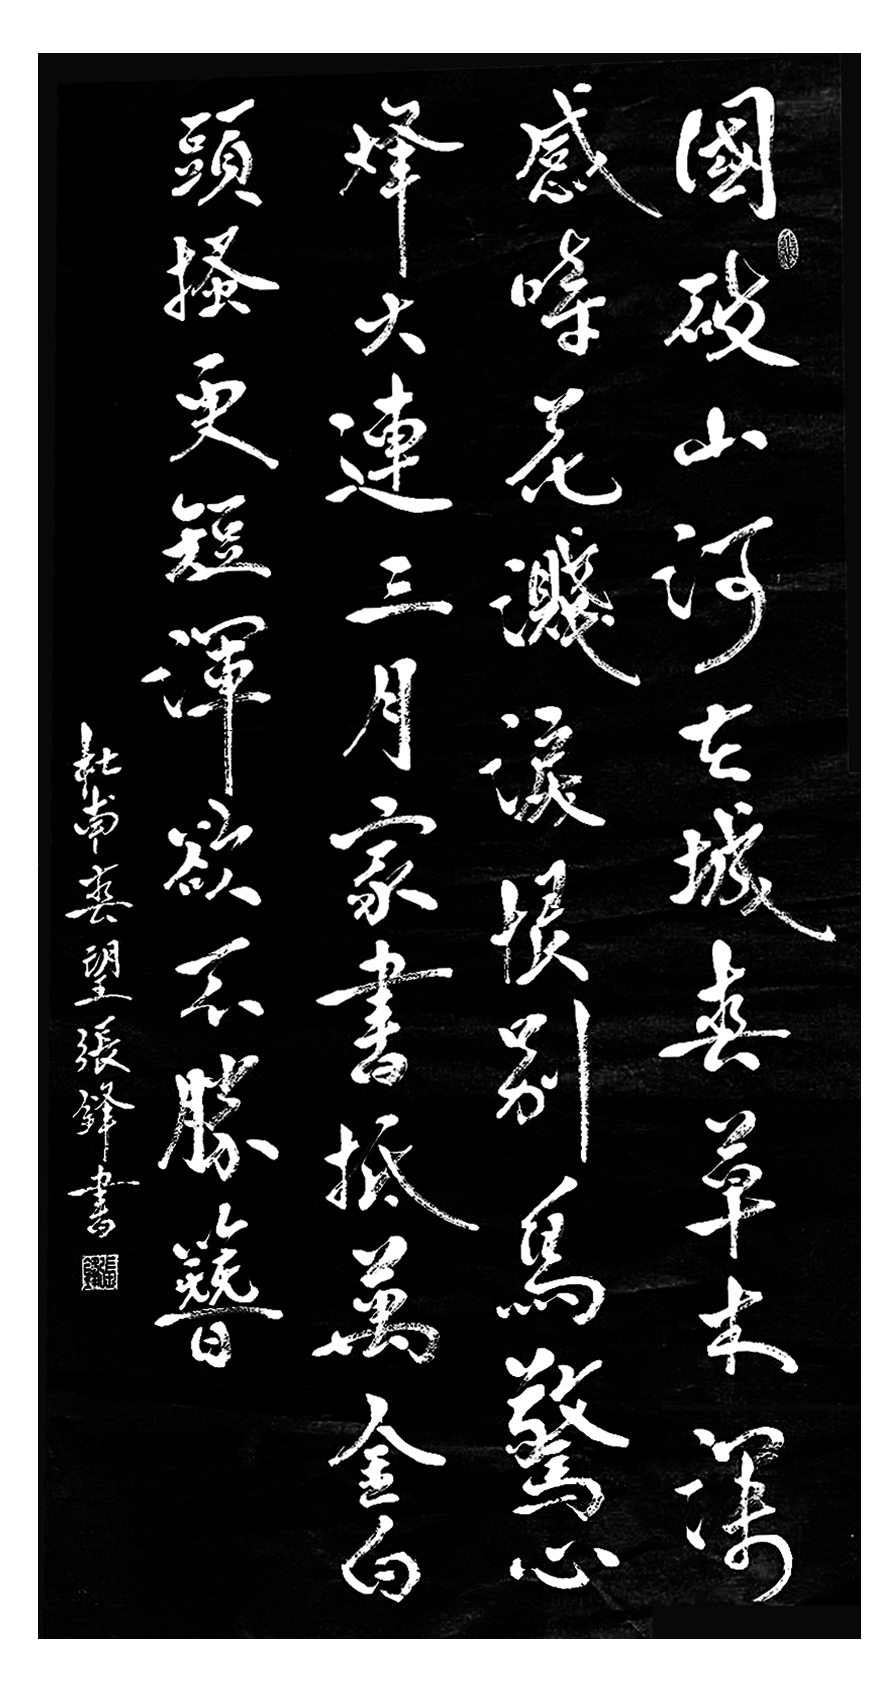 國破山河在城春草木深
感時花濺淚恨別鳥驚心
烽火連三月家書抵萬金白
頭搔更短渾欲不勝簪
杜甫春望張鋒書